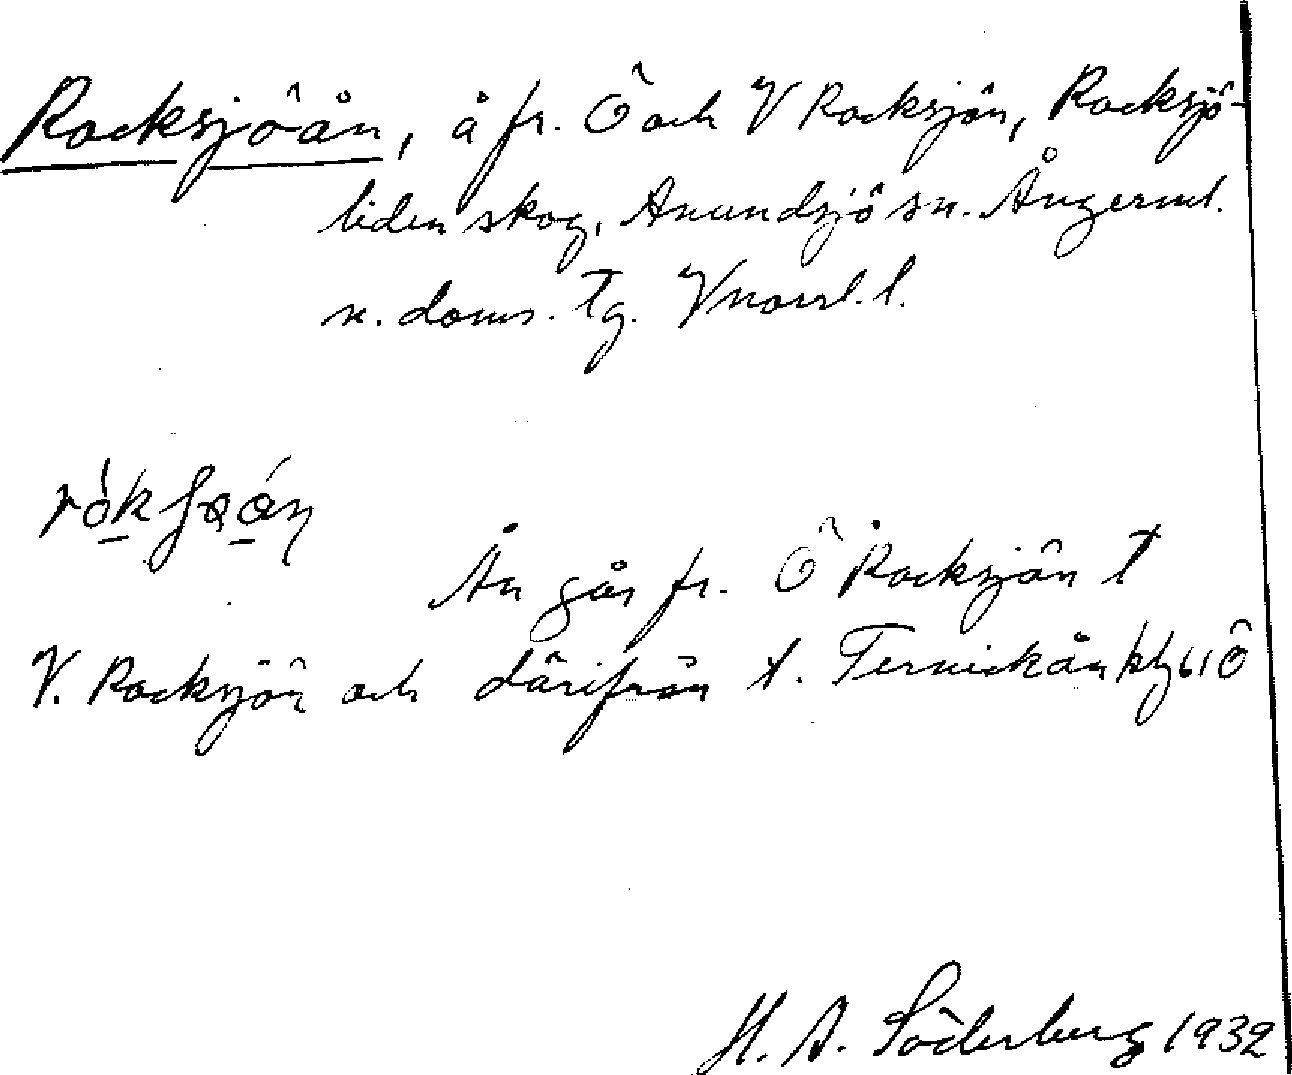 Rocksjöån, å fr. Ö och V Rocksjön, Rocksjö-
liden skog, Anundsjö sn. Ångerml.
n. doms. Tg. Vnorrl. l.
Ån går fr. Ö Rocksjön t
V. Rocksjön och därifrån t. Ternickån kbl 61 Ö
H. A. Söderberg 1932